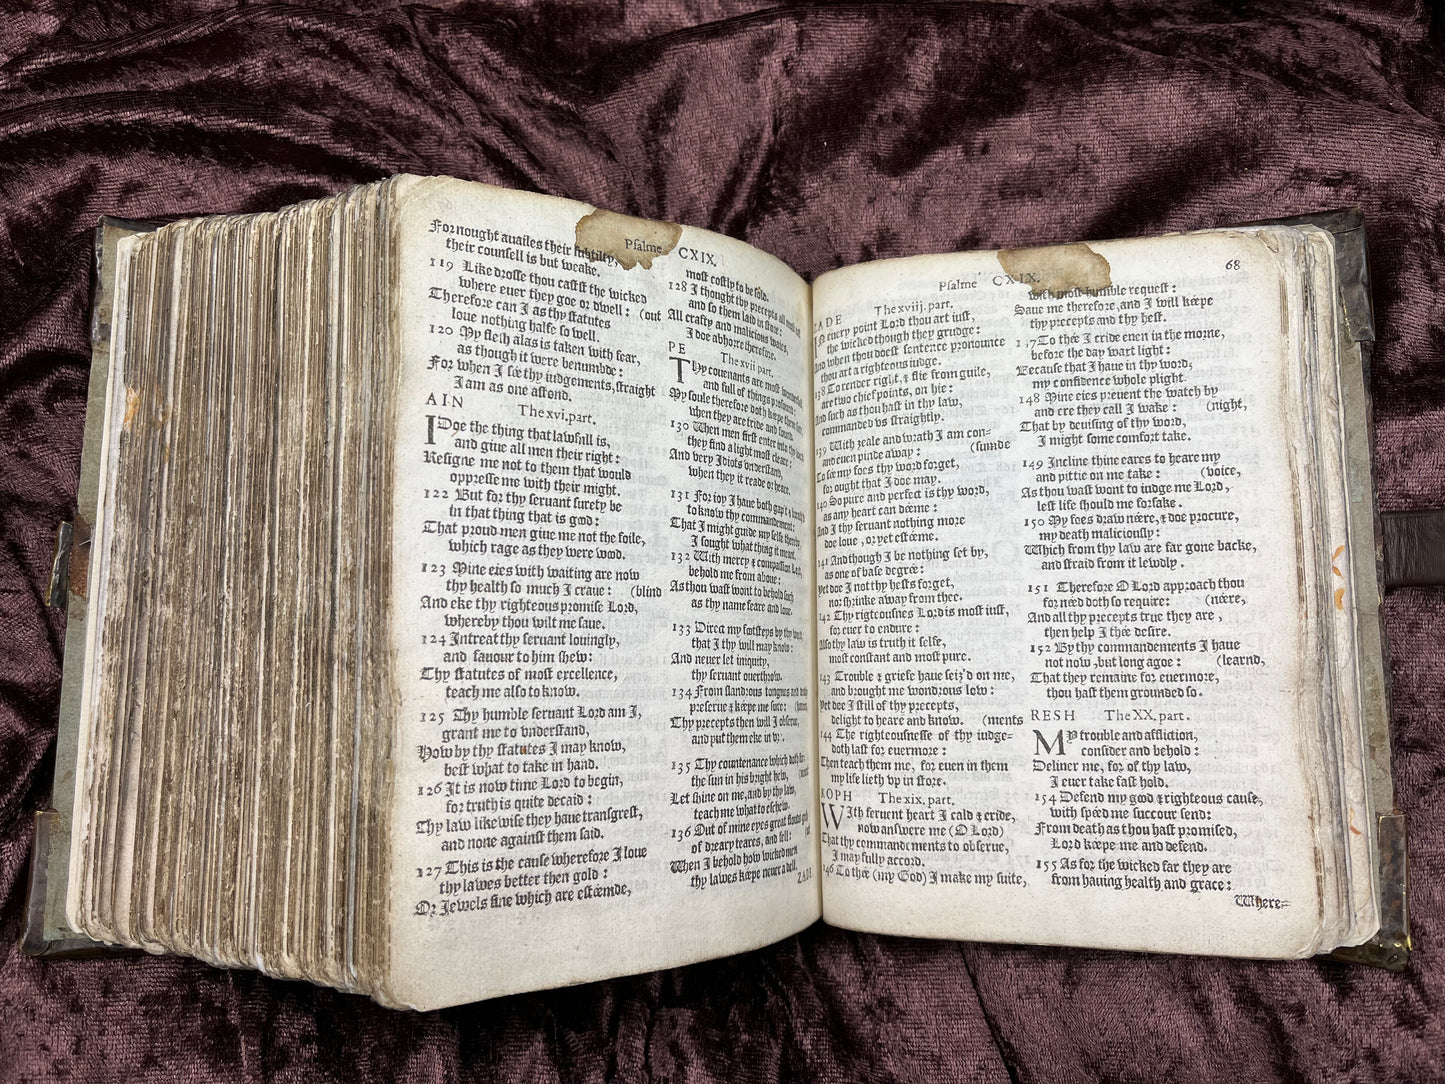 Psalme CXIX.
For nought auailes their subtilty,
their counsell is but weake.
119 Like drosse thou castst the wicked
where euer they goe or dwell : (out
Therefore can I as thy statutes
loue nothing halfe so well.
120 My flesh alas is taken with fear,
as though it were benumbde :
For when I sée thy iudgements, straight
I am as one astond.
AIN
The xvi. part.
I Doe the thing that lawfull is,
and giue all men their right :
Resigne me not to them that would
oppresse me with their might.
122 But for thy seruant surety be
in that thing that is good :
That proud men giue me not the foile,
which rage as they were wood.
123 Mine eies with waiting are now
thy health so much I craue : (blind
And eke thy righteous promise Lord,
whereby thou wilt me saue.
124 Intreat thy seruant louingly,
and fauour to him shew :
Thy statutes of most excellence,
teach me also to know.
125 Thy humble seruant Lord am I,
grant me to vnderstand,
How by thy statutes I may know,
best what to take in hand.
126 It is now time Lord to begin,
for truth is quite decaid :
Thy law likewise they haue transgrest,
and none against them said.
127 This is the cause wherefore I loue
thy lawes better then gold :
Or Jewels fine which are estéemde,
most costly to be sold.
128 I thought thy precepts all most
and so them laid in store :
All crafty and malicious
I doe abhorre therefore.
PE
The xvii part.
Thy couenants are most wonderfull,
and full of things profound :
My soule therefore doth kéepe them sure,
when they are tride and found.
130 When men first enter into thy
they find a light most cleare :
And very Idiots vnderstand,
when they it reade or heare.
131 For ioy I haue both gapt &
to know thy commandement :
That I might guide my selfe thereby,
I sought what thing it meant.
132 With mercy & compassion Lord,
behold me from aboue :
As thou wast wont to behold such
as thy name feare and loue.
133 Direct my footsteps by thy word,
that I thy will may know :
And neuer let iniquity,
thy seruant ouerthrow.
134 From slandrous tongues and
preserue & kéepe me sure :
Thy precepts then will I obserue,
and put them eke in
135 Thy countenance which doth
the sun in his bright hew,
Let shine on me, and by thy law,
teach me what to eschew.
136 Out of mine eyes great flouds
of dreary teares, and fell :
When I behold how wicked men
thy lawes kéepe neuer a dell.
ZADE
Psalme CXIX.
68
ZADE
The xviij. part.
IN euery point Lord thou art iust,
the wicked though they grudge :
And when thou doest sentence pronounce
thou art a righteous iudge.
138 To render right, & flie from guile,
are two chief points, on hie :
And such as thou hast in thy law,
commanded vs straightly.
139 With zeale and wrath I am con-
and euen pinde away : (sumde
To sée my foes thy word forget,
for ought that I doe may.
140 So pure and perfect is thy word,
as any heart can déeme :
And I thy seruant nothing more
doe loue, or yet estéeme.
141 And though I be nothing set by,
as one of base degrée :
Yet doe I not thy hests forget,
nor shrinke away from thee.
142 Thy righteousnes Lord is most iust,
for euer to endure :
Also thy law is truth it selfe,
most constant and most pure.
143 Trouble & griefe haue seiz'd on me,
and brought me wondrous low :
Yet doe I still of thy precepts,
delight to heare and know. (ments
144 The righteousnesse of thy iudge-
doth last for euermore :
Then teach them me, for euen in them
my life lieth vp in store.
KOPH
The xix. part.
WIth feruent heart I cald & cride,
now answere me (O Lord)
That thy commandements to obserue,
I may fully accord.
146 To thée (my God) I make my suite,
with most humble request :
Saue me therefore, and I will kéepe
thy precepts and thy hest.
147 To thée I cride euen in the morne,
before the day wart light :
Because that I haue in thy word,
my confidence whole plight.
148 Mine eies preuent the watch by
and ere they call I wake : (night,
That by deuising of thy word,
I might some comfort take.
149 Incline thine eares to heare my
and pittie on me take : (voice,
As thou wast wont to iudge me Lord,
lest life should me forsake.
150 My foes draw néere, & doe procure,
my death maliciously :
Which from thy law are far gone backe,
and straid from it lewdly.
151 Therefore O Lord approach thou
for néed doth so require : (néere,
And all thy precepts true they are,
then help I thée desire.
152 By thy commandements I haue
not now, but long agoe : (learnd,
That they remaine for euermore,
thou hast them grounded so.
RESH
The XX. part.
MY trouble and affliction,
consider and behold :
Deliuer me, for of thy law,
I euer take fast hold.
154 Defend my good & righteous cause,
with spéed me succour send :
From death as thou hast promised,
Lord kéepe me and defend.
155 As for the wicked far they are
from hauing health and grace :
Where=